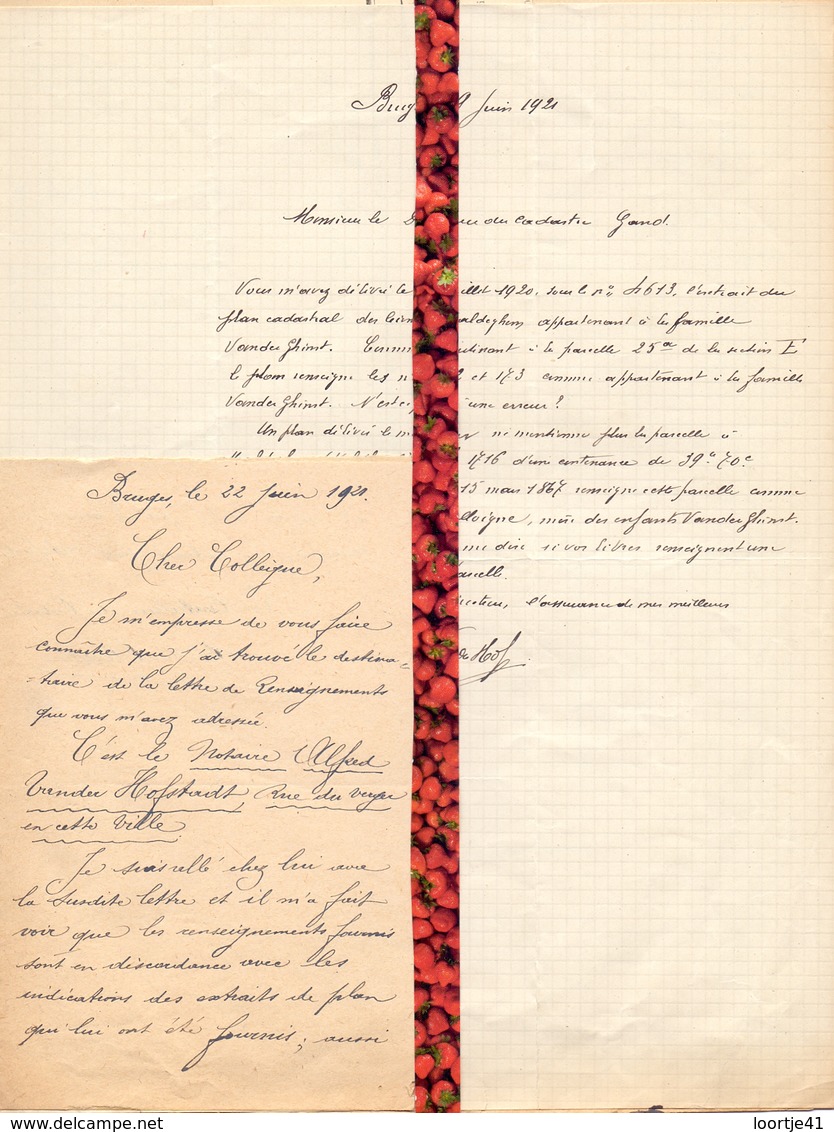 Juin 1921
Monsieur le du Cadastre Gand.
Vous m'avez délivré le illet 1920, sous le nº 4613, l'extrait du
plan cadastral des biens aldeghem appartenant à la famille
Vander Ghinst. à la parcelle 25 de la section E
le plan renseigne les et 173 comme appartenant à la famille
Vander Ghinst. N'est une erreur?
Un plan délivré le ne mentionne plus la parcelle
1716 d'une contenance de 39ª 70ᶜ
15 mars 1867 renseigne cette parcelle comme
mère des enfants Vander Ghinst.
me dire si vos livres renseignent une
arcelle.
l'assurance de mes meilleurs
Hof
Bruges, le 22 Juin 1921.
Cher Collègue,
Je m'empresse de vous faire
connaître que j'ai trouvé le destina-
-taire de la lettre de Renseignements
que vous m'avez adressée.
C'est le Notaire Alfred
Vander Hofstadt, Rue du Verger
en cette Ville.
Je suis allé chez lui avec
la susdite lettre et il m'a fait
voir que les renseignements fournis
sont en discordance avec les
indications des extraits de plan
qui lui ont été fournis; aussi
www.delcampe.net
loortje41